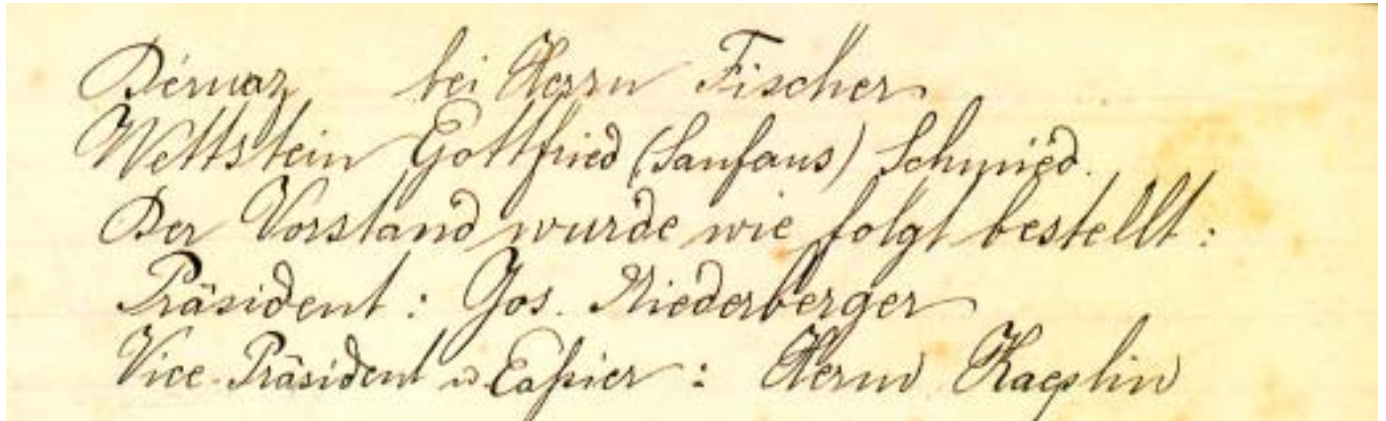 Déruaz, bei Herrn Fischer
Wettstein Gottfried (Sanfans) Schmied.
Der Vorstand wurde wie folgt bestellt:
Präsident: Jos. Niederberger
Vice-Präsident u. Caßier: Herm Kaeslin